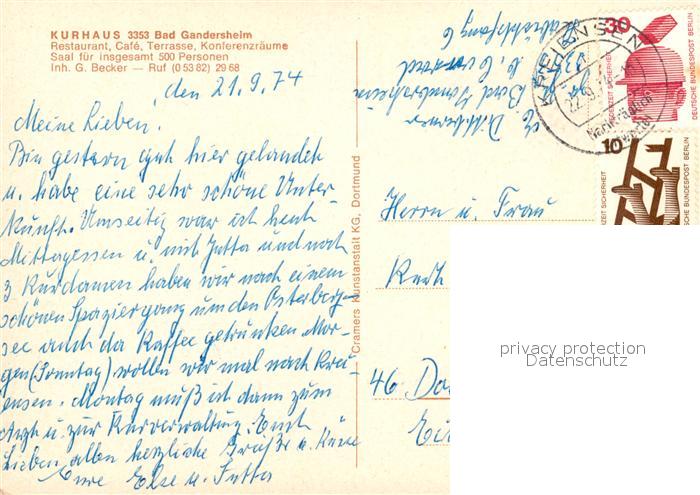 KURHAUS 3353 Bad Gandersheim
Restaurant, Café, Terrasse, Konferenzräume
Saal für insgesamt 500 Personen
Inh. G. Becker — Ruf (0 53 82) 29 68
den 21.9.74
Meine Lieben.
Bin gestern gut hier gelandet
u. habe eine sehr schöne Unter-
kunft. war ich heut
Mittagessen u. mit Jutta und noch
3 Kurdamen haben wir nach einem
schönen Spaziergang um den Osterberg-
see auch da Kaffee getrunken. Mor-
gen (Sonntag) wollen wir mal nach Krei-
ensen. Montag muß ich dann zum
Arzt u. zur Kurverwaltung. Euch
Lieben allen herzliche Grüße u. Küsse
Eure Else u. Jutta
Cramers Kunstanstalt KG, Dortmund
Bad Gandersheim
KREIENSEN
22.9.
Nachträglich
entwertet
30
JEDERZEIT SICHERHEIT
DEUTSCHE BUNDESPOST BERLIN
10
JEDERZEIT SICHERHEIT
DEUTSCHE BUNDESPOST BERLIN
Herrn u. Frau
46. Do
privacy protection
Datenschutz